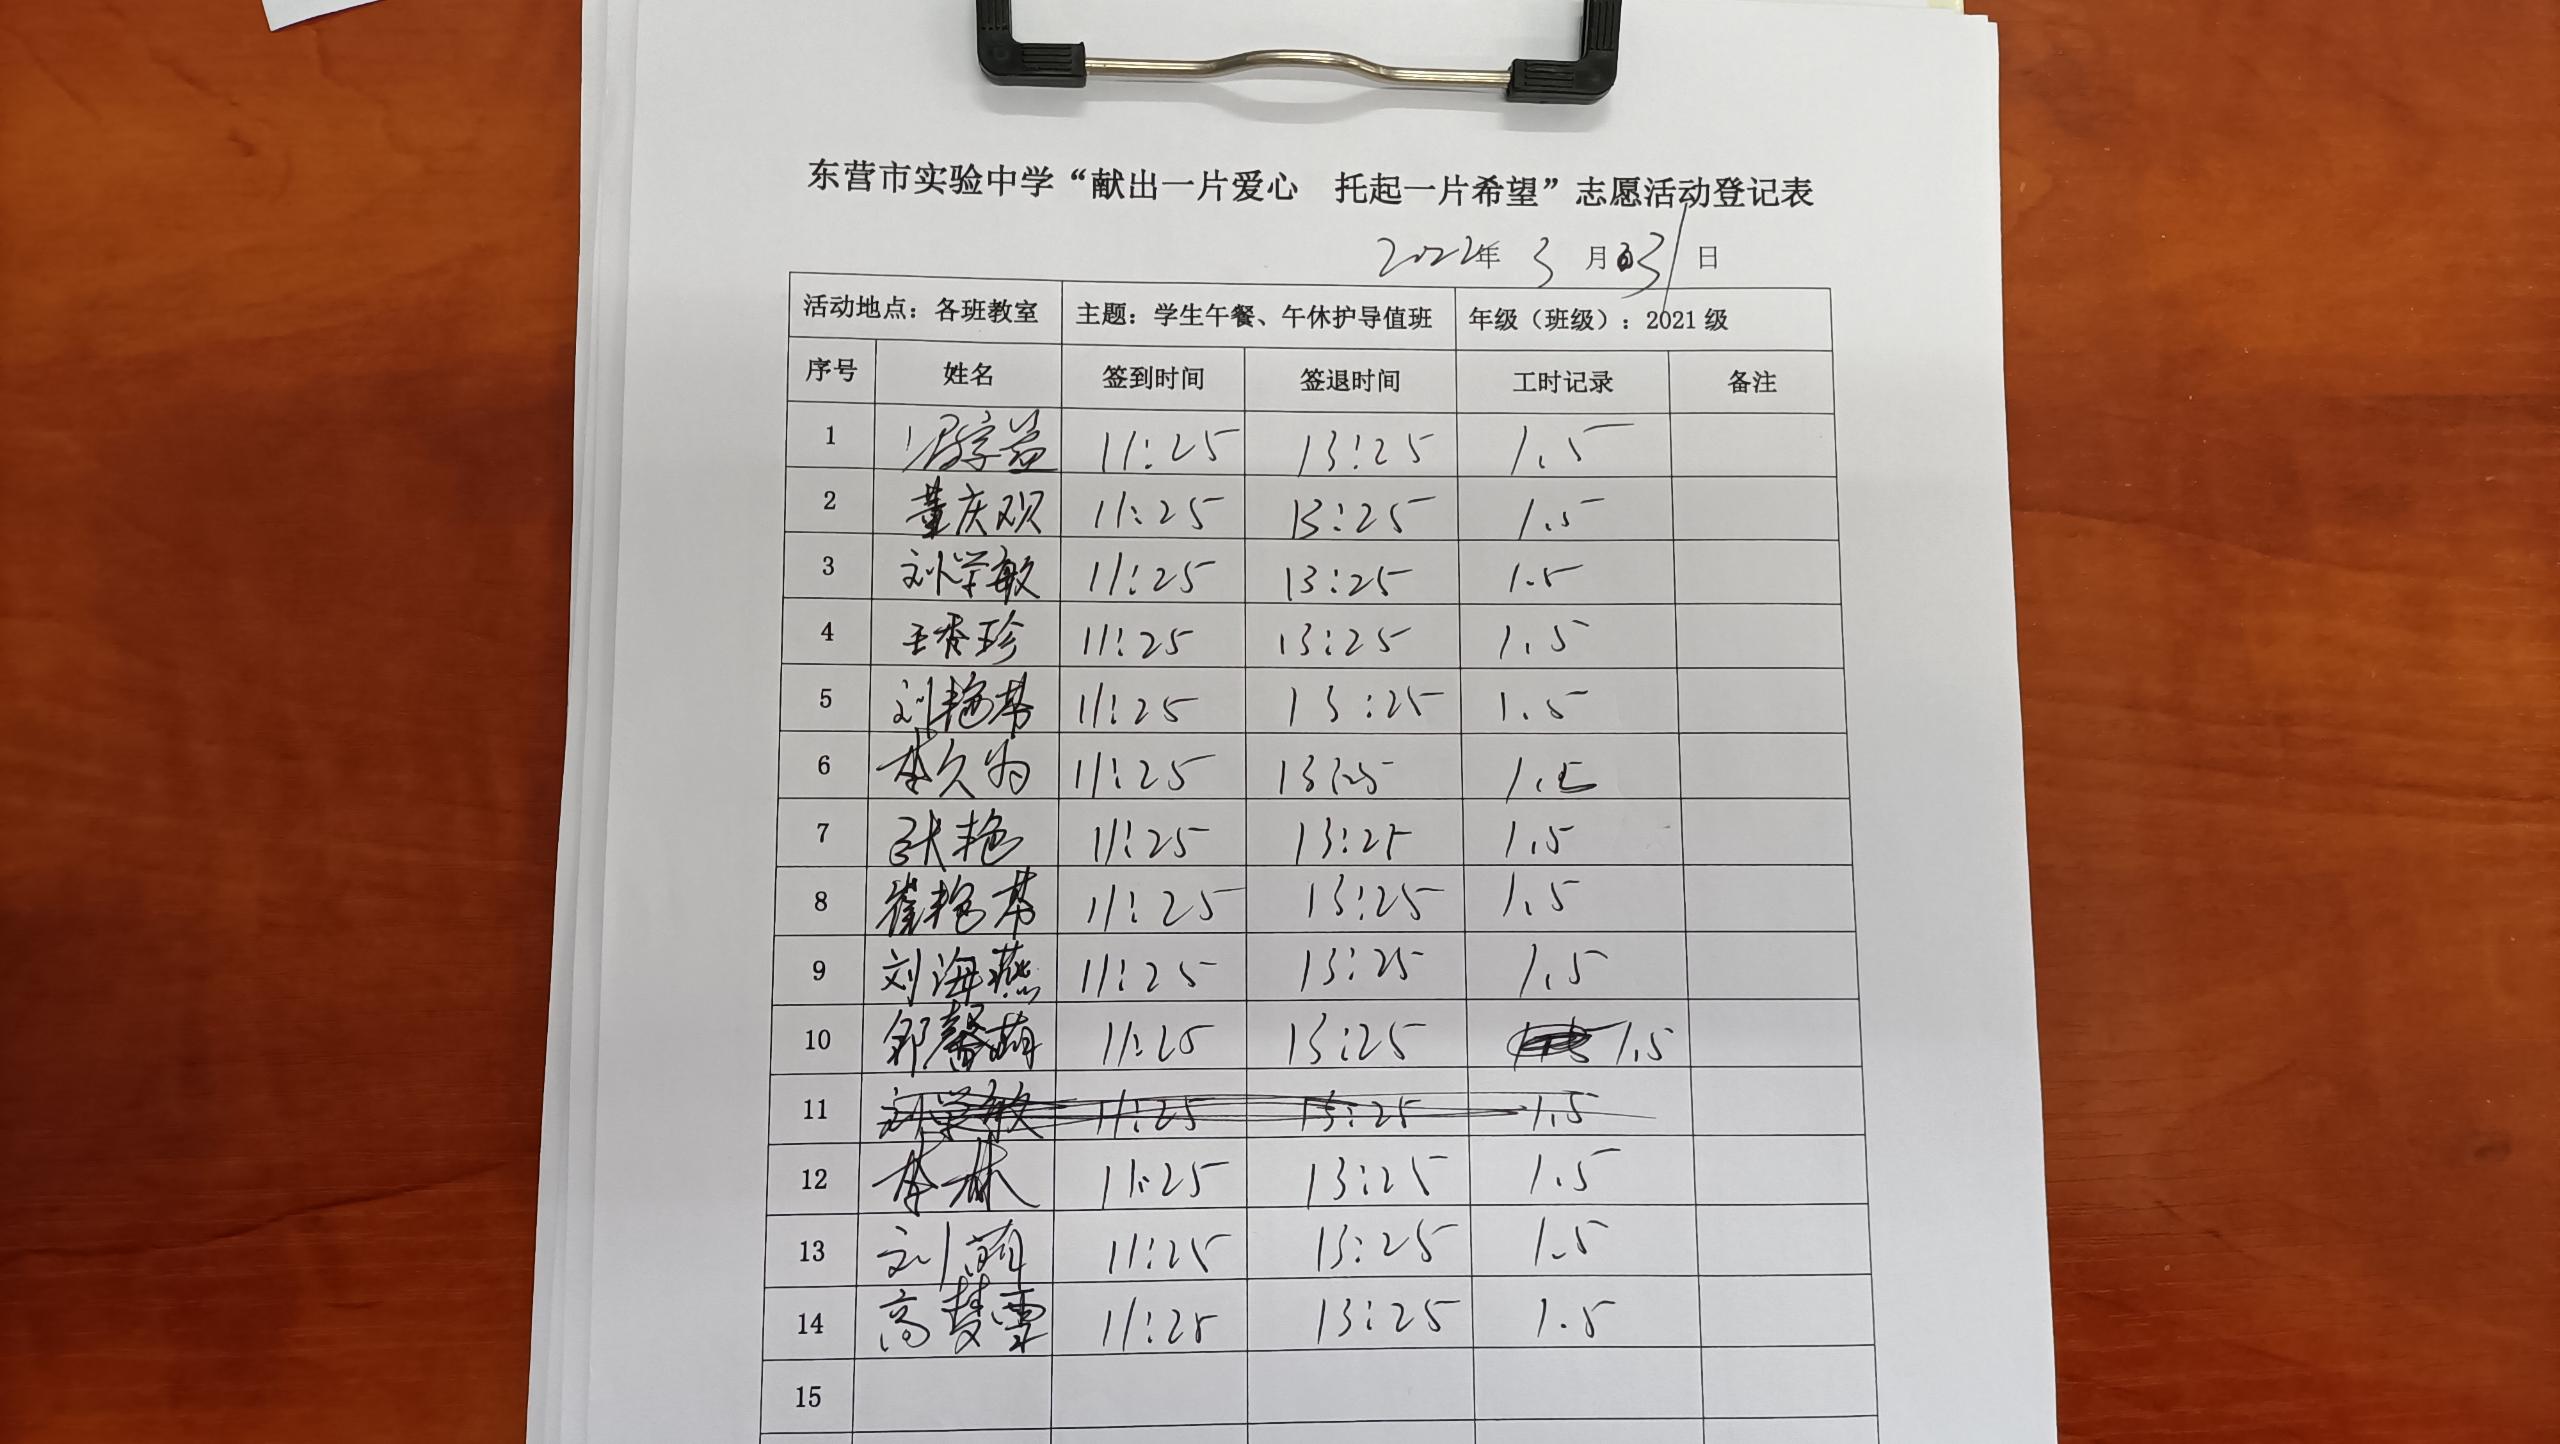 东营市实验中学“献出一片爱心 托起一片希望”志愿活动登记表
2022年 3 月 31 日
活动地点：各班教室 主题：学生午餐、午休护导值班 年级（班级）：2021级
序号 姓名 签到时间 签退时间 工时记录 备注
1 11:25 13:25 1.5
2 董庆双 11:25 13:25 1.5
3 刘学敏 11:25 13:25 1.5
4 王秀珍 11:25 13:25 1.5
5 刘艳 11:25 13:25 1.5
6 李久为 11:25 13:25 1.5
7 张艳 11:25 13:25 1.5
8 崔艳 11:25 13:25 1.5
9 刘海燕 11:25 13:25 1.5
10 邹馨萌 11:25 13:25 1.5
11 刘学敏 11:25 13:25 1.5
12 李林 11:25 13:25 1.5
13 刘萌 11:25 13:25 1.5
14 高梦雪 11:25 13:25 1.5
15